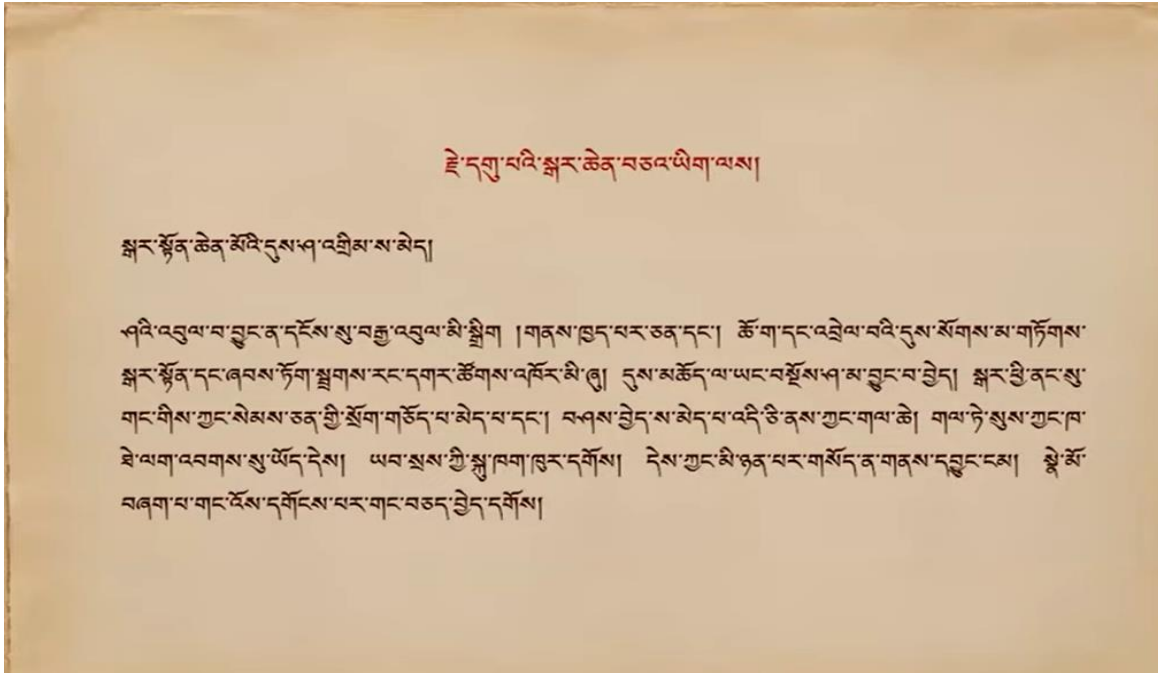 རྗེ་དགུ་པའི་སྒར་ཆེན་བཅའ་ཡིག་ལས།
སྒར་སྟོན་ཆེན་མོའི་དུས་ཤ་འགྲིམ་ས་མེད།
ཤའི་འབུལ་བ་བྱུང་ན་དངོས་སུ་བརྒྱ་འབུལ་མི་སྒྲིག །གནས་ཁྱད་པར་ཅན་དང་། ཆོ་ག་དང་འབྲེལ་བའི་དུས་སོགས་མ་གཏོགས་
སྒར་སྟོན་དང་ཞབས་ཏོག་སྦྲགས་རང་དགར་ཚོགས་འཁོར་མི་ཞུ། དུས་མཆོད་ལ་ཡང་བསྔོས་ཤ་མ་བྱུང་བ་བྱེད། སྒར་ཕྱི་ནང་སུ་
གང་གིས་ཀྱང་སེམས་ཅན་གྱི་སྲོག་གཅོད་པ་མེད་པ་དང་། བཤས་བྱེད་ས་མེད་པ་འདི་ཅི་ནས་ཀྱང་གལ་ཆེ། གལ་ཏེ་སུས་ཀྱང་ཁ་
ཐེ་ལག་འབགས་སུ་ཡོད་དེས། ཡབ་སྲས་ཀྱི་སྐུ་ཁག་ཁུར་དགོས། དེས་ཀྱང་མི་ཉན་པར་གསོད་ན་གནས་དབྱུང་ངམ། སྣེ་མོ་
བཞག་པ་གང་འོས་དགོངས་པར་གང་བཅད་བྱེད་དགོས།